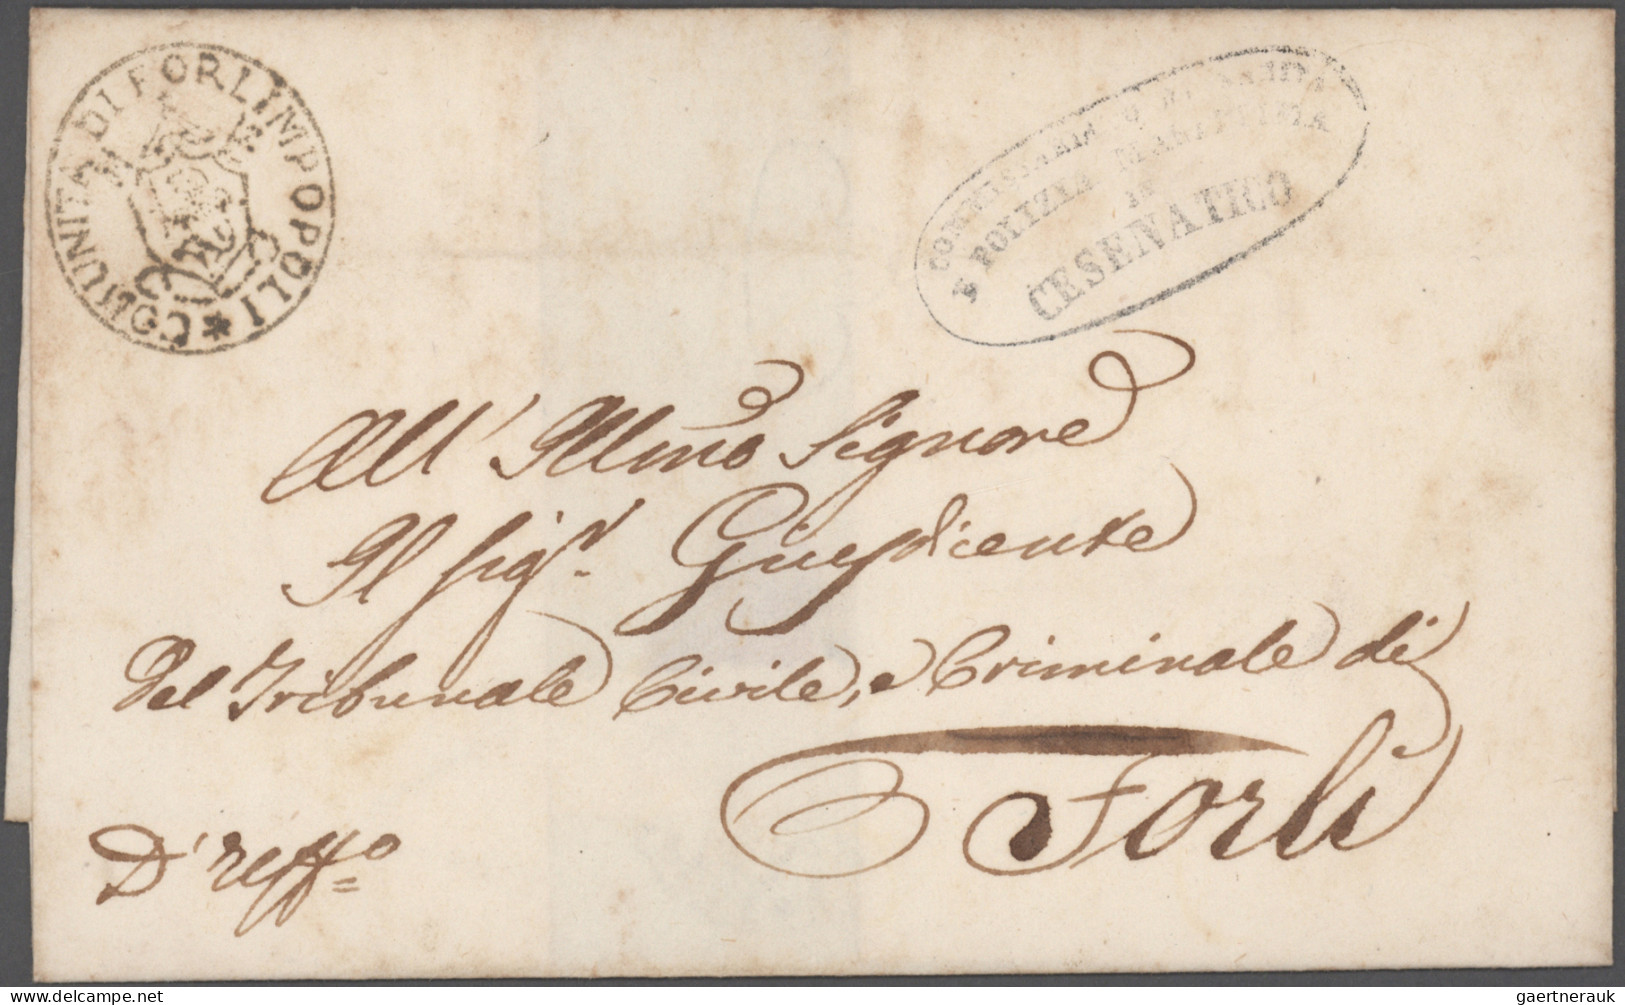 COMUNITA DI FORLIMPOPOLI *
COMMISSARIATO DI SANITA
E POLIZIA MARITTIMA
IN
CESENATICO
All' Illmo Signore
Il Sigr. Giusdicente
Del Tribunale Civile, e Criminale di
Forlì
D' Uffo
gaertnerauk